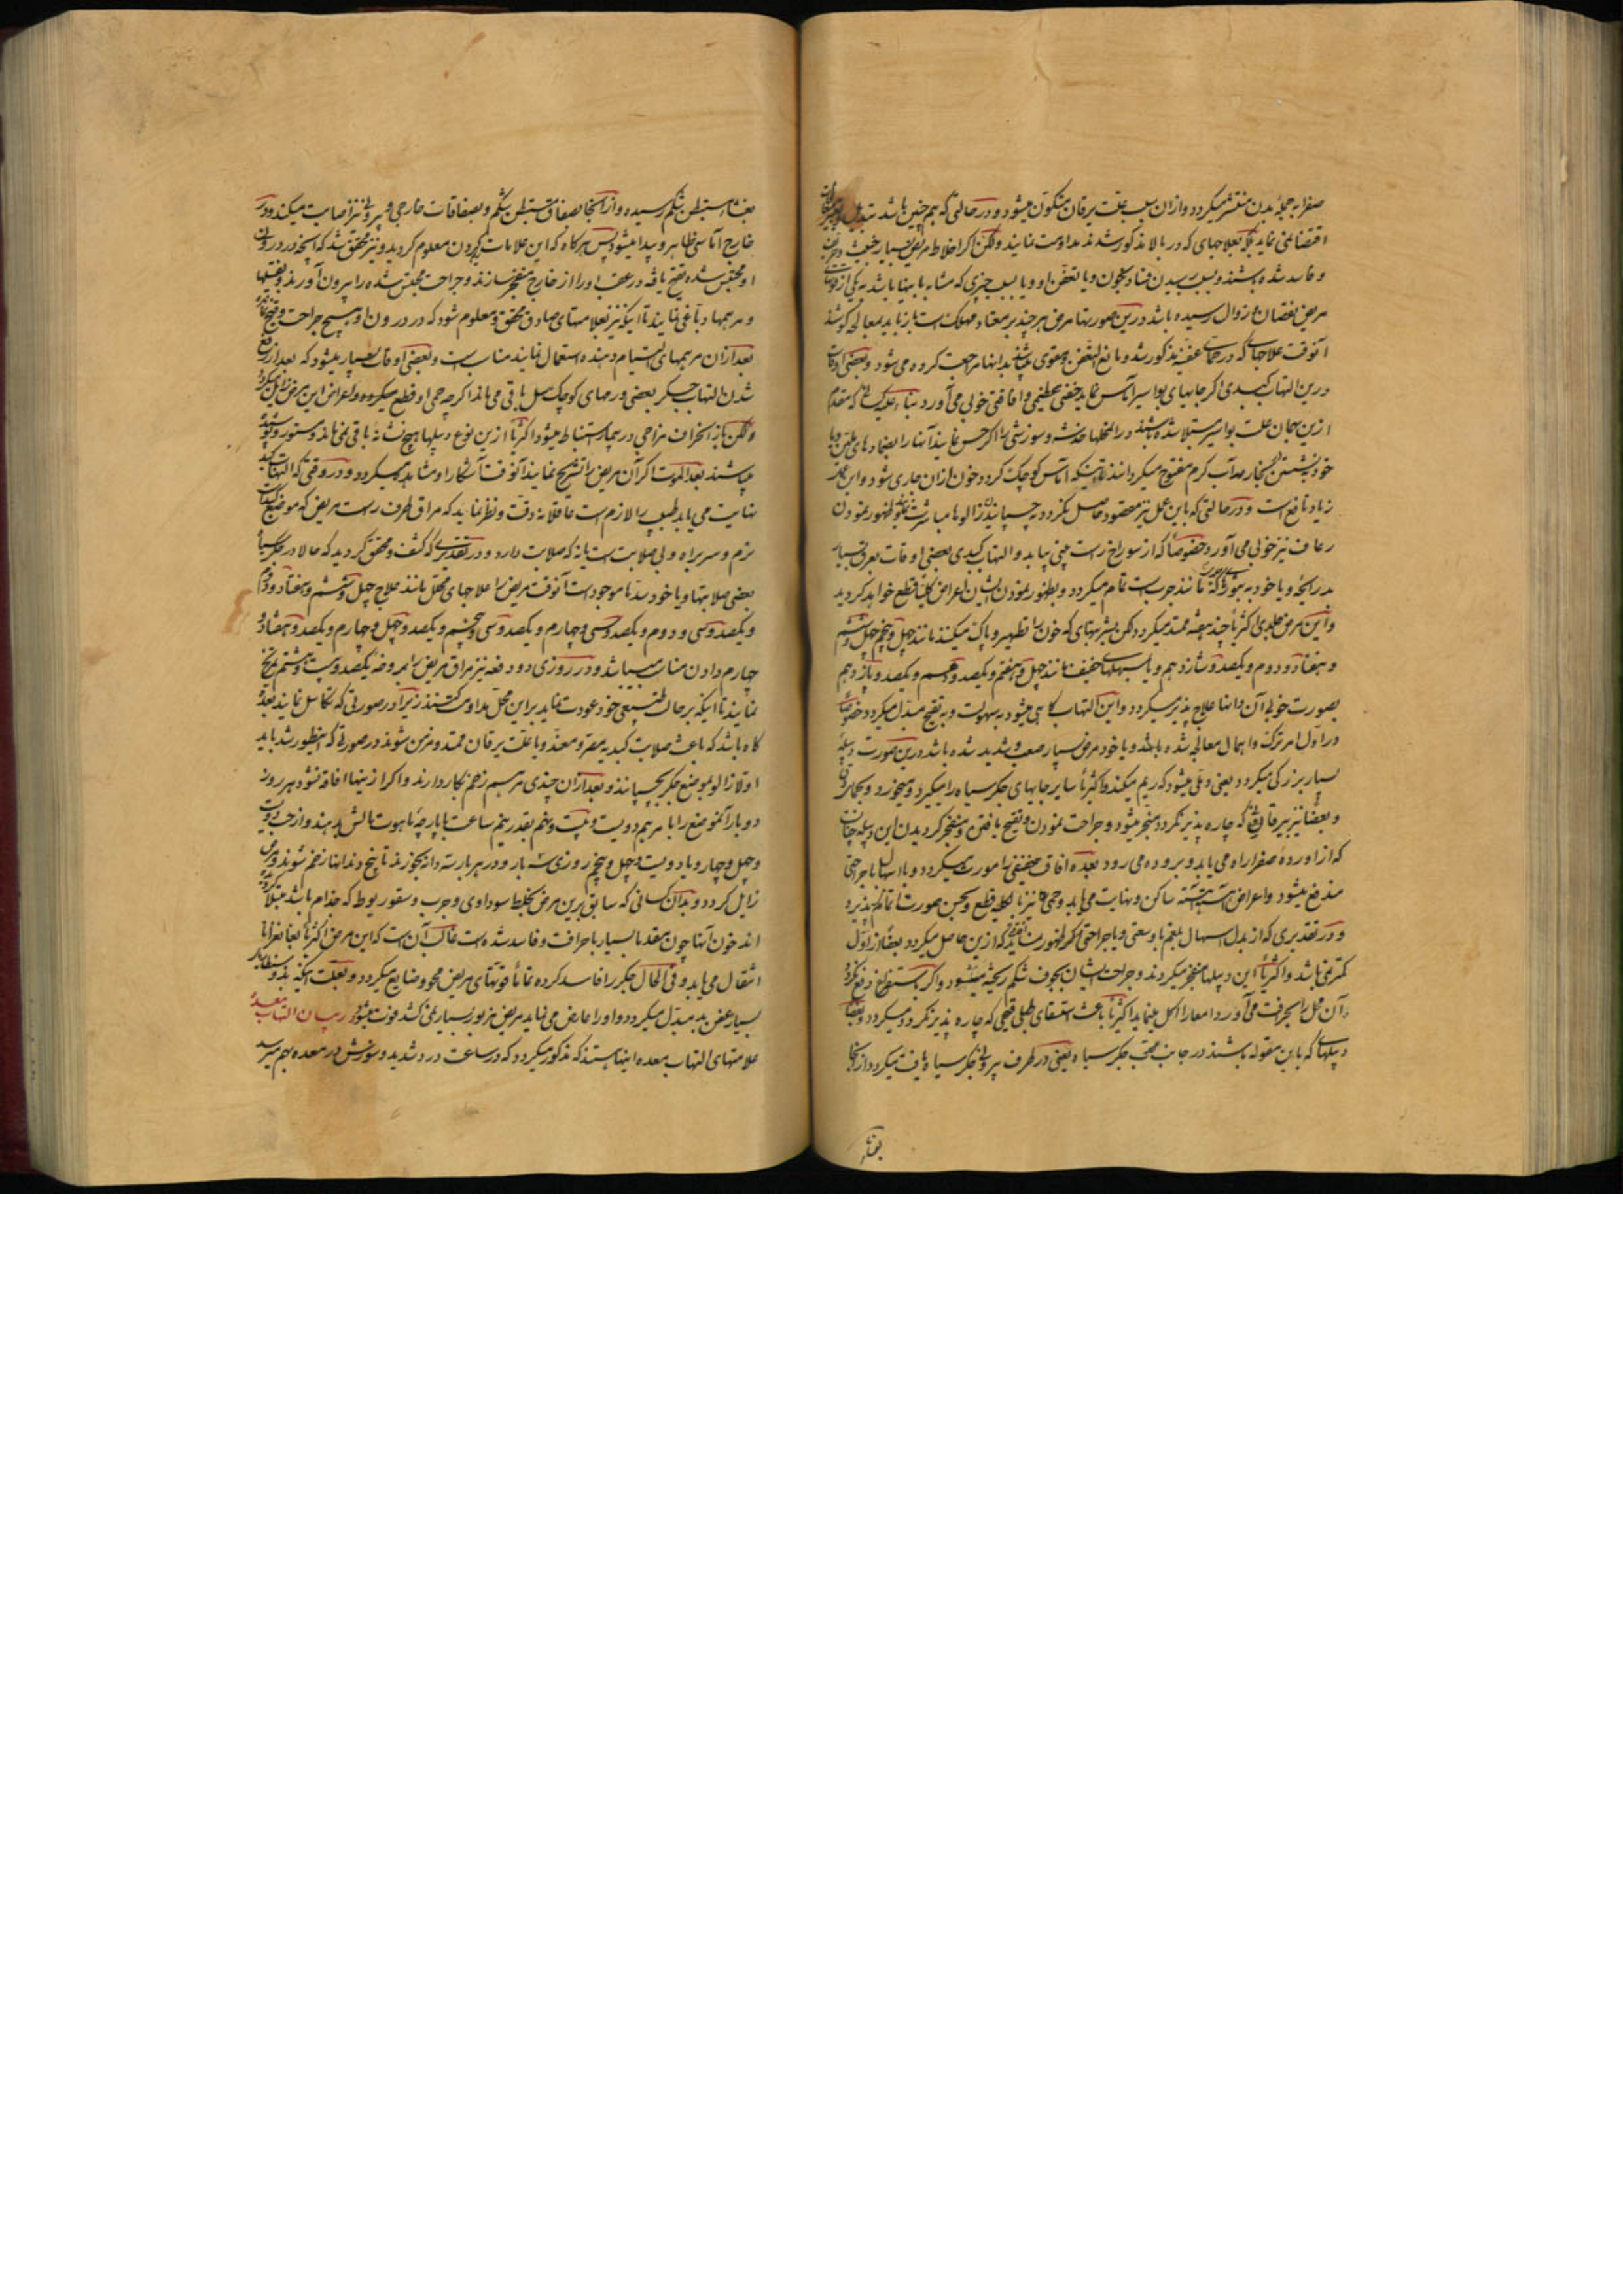 صفرا به جمله بدن منتشر میکردد وازان سبب علت یرقان متکون میشود و در حالتی که هم چنین باشد تبدیل
اقتضا نمی نماید بلکه بعلاجهای که در بالا مذکور شدند مداومت نمایند ولکن اکر اخلاط مریض بسیار خبیث
و فاسد شده باشند و بسبب رسیدن فساد بخون و یا تعفن او و یا بسبب چیزی که مشابه باینها باشد به یکی از
مریض نقصان و زوال رسیده باشد درین صورتها مرض هر چند بر معتاد مهلک است باز باید بمعالجه کوشند
آنوقت علاجهای که در حمای عفنه مذکور شد و مانع التعفن و مقوی باشند بدانها مراجعت کرده می شود و بعضی اوقات
درین التهاب کبدی اکر جایهای بواسیر آماس نماید خفتی عظیمی و افاقتی خوبی می آورد بناء علیه کسانی که مقدم
ازین بهمان علت بواسیر مبتلا شده باشند در آن محلها خدشه و سوزشی را اکر حس نمایند آنها را بضمادهای ملین و یا
خود بنشستن ببخار صد آب کرم مفتوح میکردانند تا اینکه آماس کوچک کردد و خون ازان جاری شود و این
زیاد نافع است و در حالتی که باین عمل نیز مقصود حاصل نکردد به چسپانیدن زالوها مباشرت بظهور نمودن
رعاف نیز خوبی می آورد خصوصاً که از سوراخ راست بینی بیاید و التهاب کبدی بعضی اوقات بعرق بسیار
بد رایحه و یا خود به بثورهای که مانند جرب است تمام میکردد و بظهور نمودن ایشان اعراض کلیتاً قطع خواهد کردید
و این مرض جلدی اکثریا چند هفته ممتد میکردد لکن بشربتهای که خون را تطهیر و پاک میکنند مانند چهل و پنجم چهل و ششم
و هفتاد و دوم و یکصد و شانزدهم و یا بمسهلهای خفیف مانند چهل و هفتم و یکصد و دهم و یکصد و یازدهم
بصورت خوبی آن دانها علاج پذیر میکردد و این التهاب کاهی میشود به سهولت و به تقیح مبدل میکردد خصوصاً
در اول امر ترک و اهمال معالجه شده باشد و یا خود مرض بسیار صعب و شدید شده باشد درین صورت دبیله
بسیار بزرکی میکردد یعنی دملی میشود که ریم میکند و اکثریا سایر جایهای جکر سیاه را میکیرد و میخورد
و بعضاً نیز بیرقانی که چاره پذیر نکردد منجر میشود و جراحت نمودن و تقیح یافتن و منفجر کردیدن این دبیله چنانست
که از اورده صفرا راه می یابد و بروده می رود بعده افاقه خفیفی رامورث میکردد و با اسهال با جراحتی
مندفع میشود و اعراض آهسته آهسته ساکن و نهایت می یابد و حمی نیز بالکلیه قطع و بحسن صورت اتمام پذیرد
و در تقدیری که از بدل اسهال بلغم با وسعتی و یا جراحتی اکر ظهور نماید که ازین حاصل میکردد بعضاً از اول
کمتر نمی باشد و اکثریا این دبیلها منفجر میکردند و جراحت ایشان بجوف شکم ریخته میشود و اکر باستفراغ دفع نکردد
آن محل را بحرفت می آورد و امعا را اکل مینماید اکثریا باعث استسقای طبلی قیحی که چاره پذیر نکردد میکردد و بعضاً
دبیلهای که باین مقوله باشند در جانب محدب جکر سیاه یعنی در طرف بیرونی جکر سیاه یافت میکردد از آنجا
بغشاء
بغشاء مستبطن شکم رسیده و از آنجا بصفاق مستبطن شکم و بصفاقات خارجی و بیرونی نیز اصابت میکند و در
خارج آماسی ظاهر و پیدا میشود پس هرکاه که این علامات معلوم کردید و نیز محقق شد که آنچه در درون
او محتبس شده تقیح یافته در عقب او را از خارج منفجر سازند و جراحت محتبس شده را بیرون آورند و بفتیلها
و مرهمها دباغی نمایند تا اینکه نیز بعلامتهای صادق محقق و معلوم شود که در درون او هیچ جراحت و قیح نماند
بعد ازان مرهمهای التیام دهنده استعمال نمایند مناسب است و بعضی اوقات بسیار میشود که بعد از رفع
شدن التهاب جکر بعضی ورمهای کوچک سل باقی می ماند اکرچه حمی او قطع میکردد و اعراض این مرض زایل میکردد
ولکن باز انحراف مزاجی در بیمار استنباط میشود اکثریا ازین نوع دبیلها هیچ نشانه باقی نمی ماند و مستور و پوشیده
میباشند بعد الموت اکر آن مریض را تشریح نمایند آنوقت آشکار او مشاهد میکردد و در وقتی که التهاب کبد
نهایت می یابد طبیب را لازم است عاقلانه دقت و نظر نماید که مراق طرف راست مریض که موضع کبد است
نرم و سربراه و بی صلابت است یا نه که صلابت دارد و در تقدیری که کشف و محقق کردید که حالا در جکر سیاه
بعضی صلابتها و یا خود سدها موجود است آنوقت مریض را علاجهای محلل مانند علاج چهل و ششم و هفتاد و دوم
و یکصد و سی و دوم و یکصد و سی و چهارم و یکصد و سی و پنجم و یکصد و چهل و چهارم و یکصد و هفتاد و
چهارم دادن مناسب میباشد و در روزی دو دفعه نیز مراق مریض را بمروخه یکصد و بیست و هشتم تمریخ
نمایند تا اینکه بر حالت طبیعی خود عودت نماید بر این محل مداومت کنند زیرا در صورتی که تکاسل نمایند بعده
کاه باشد که باعث صلابت کبدیه مصر و معند و یا علت یرقان ممتد و مزمن شوند در صورتی که اینطور شد باید
اولا زالو بموضع جکر بچسپانند و بعد ازان چندی مرهم زخم بکار دارند و اکر ازینها افاقه نشود هر روز
دو بار آنموضع را با مرهم دویست و بیست و پنجم بقدر نیم ساعت با پارچه ماهوت مالش بدهند و از حب دویست
و چهل و چهار و یا دویست و چهل و پنجم روزی سه بار و در هر بار سه دانه بخورند تا پنج دندانها زخم شوند و مرض
زایل کردد و بدان کسانی که سابق برین مرض بخلط سوداوی و جرب و سقوربوط که جذام باشد مبتلا کردیده
اند خون آنها چون معقد با بسیار با حرافت و فاسد شده است غالب آن است که این مرض اکثریا بغانغرانا
انتقال می یابد و فی الحال جکر را فاسد کرده تماماً قوتهای مریض محو و ضایع میکردد و بعلت
بسیار عفن بد مبدل میکردد و او را عارض می نماید مریض مزبور بسیار نمی کشد فوت میشود در بیان التهاب معده
علامتهای التهاب معده اینها هستند که مذکور میکردد که در ساعت درد شدید و سوزش در معده بهم میرسد